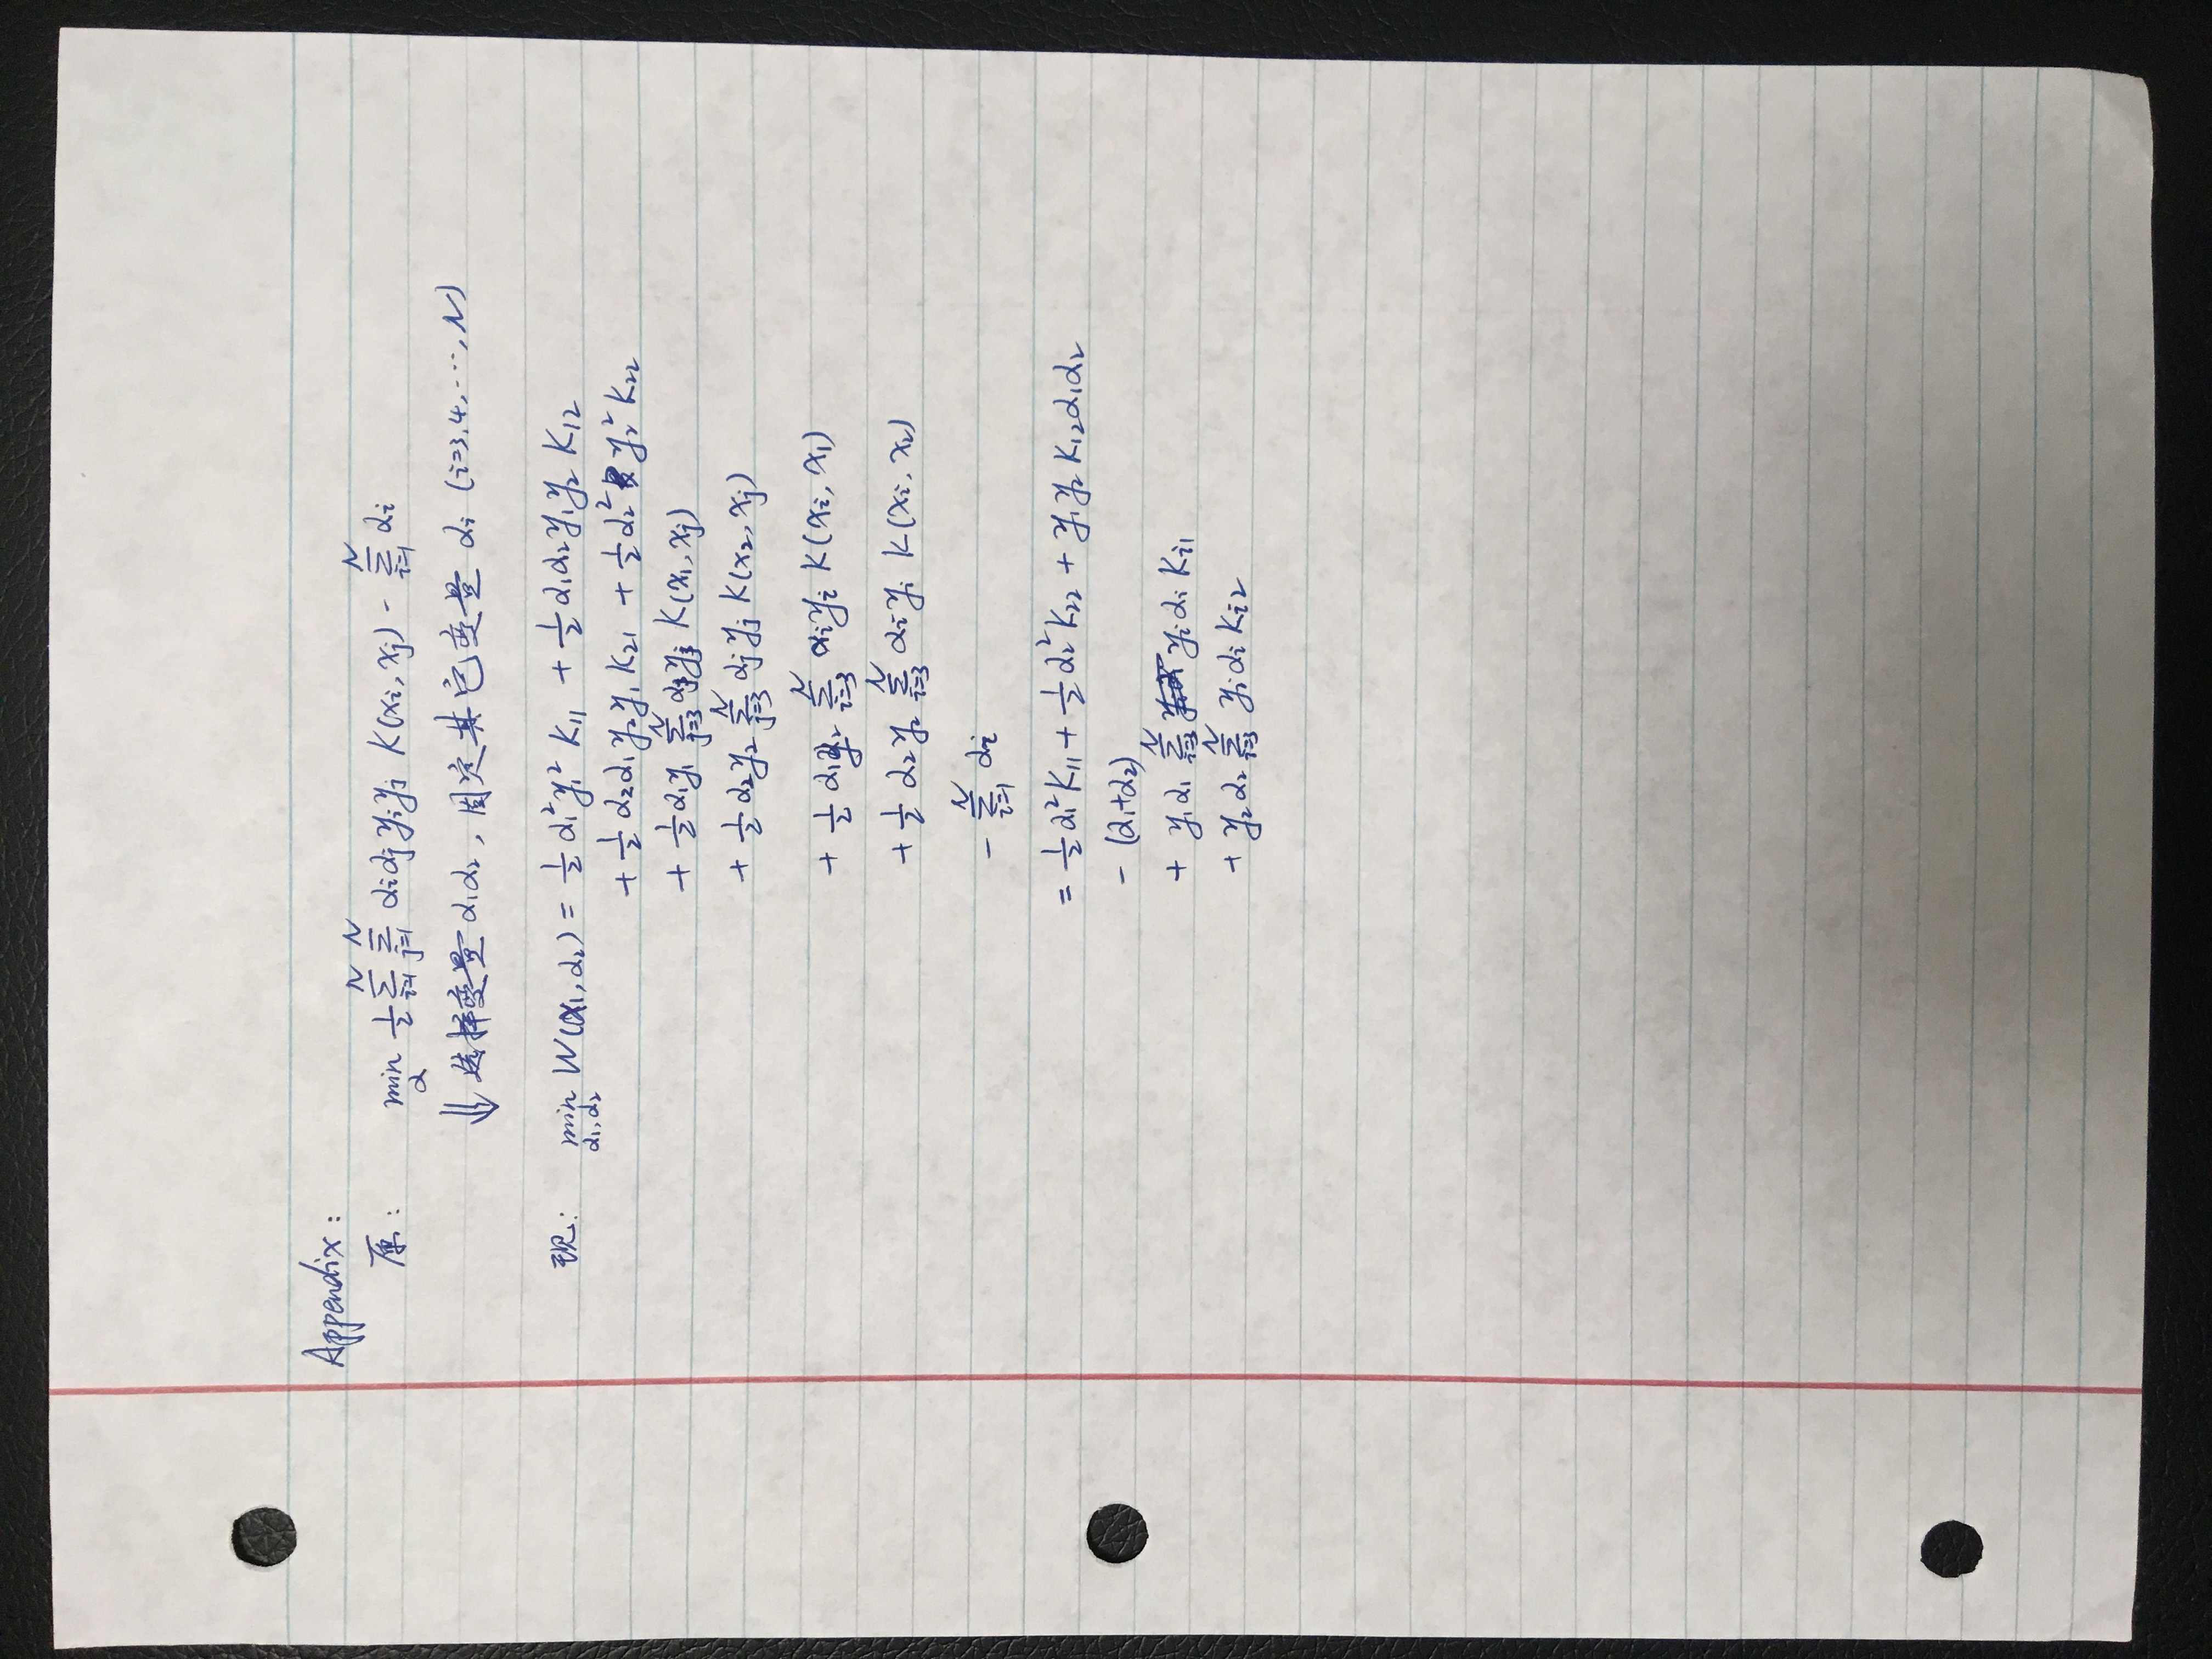 Appendix :
原 : min_α ½ Σ_{i=1}^N Σ_{j=1}^N αiαj yiyj K(xi, xj) − Σ_{i=1}^N αi
⇓ 选择变量 α1α2, 固定其它变量 αi (i=3,4,…,N)
现 : min_{α1,α2} W(α1, α2) = ½ α1² y1² K11 + ½ α1α2y1y2 K12
+ ½ α2α1y2y1 K21 + ½ α2² y2² K22
+ ½ α1y1 Σ_{j=3}^N αjyj K(x1, xj)
+ ½ α2y2 Σ_{j=3}^N αjyj K(x2, xj)
+ ½ α1y1 Σ_{i=3}^N αiyi K(xi, x1)
+ ½ α2y2 Σ_{i=3}^N αiyi K(xi, x2)
− Σ_{i=1}^N αi
= ½ α1² K11 + ½ α2² K22 + y1y2 K12 α1α2
− (α1+α2)
+ y1α1 Σ_{i=3}^N yiαi Ki1
+ y2α2 Σ_{i=3}^N yiαi Ki2